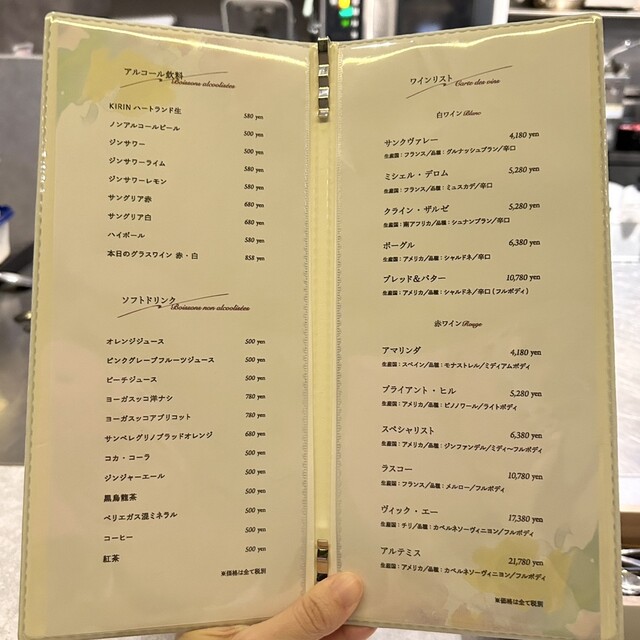 アルコール飲料
Boissons alcoolisées
KIRIN ハートランド生 580 yen
ノンアルコールビール 500 yen
ジンサワー 500 yen
ジンサワーライム 580 yen
ジンサワーレモン 580 yen
サングリア赤 680 yen
サングリア白 680 yen
ハイボール 580 yen
本日のグラスワイン 赤・白 858 yen
ソフトドリンク
Boissons non alcoolisées
オレンジジュース 500 yen
ピンクグレープフルーツジュース 500 yen
ピーチジュース 500 yen
ヨーガスッコ洋ナシ 780 yen
ヨーガスッコアプリコット 780 yen
サンペレグリノブラッドオレンジ 680 yen
コカ・コーラ 500 yen
ジンジャーエール 500 yen
黒烏龍茶 500 yen
ペリエガス混ミネラル 500 yen
コーヒー 500 yen
紅茶 500 yen
※価格は全て税別
ワインリスト
Carte des vins
白ワイン Blanc
サンクヴァレー 4,180 yen
生産国：フランス/品種：グルナッシュブラン/辛口
ミシェル・デロム 5,280 yen
生産国：フランス/品種：ミュスカデ/辛口
クライン・ザルゼ 5,280 yen
生産国：南アフリカ/品種：シュナンブラン/辛口
ボーグル 6,380 yen
生産国：アメリカ/品種：シャルドネ/辛口
ブレッド&バター 10,780 yen
生産国：アメリカ/品種：シャルドネ/辛口(フルボディ)
赤ワイン Rouge
アマリンダ 4,180 yen
生産国：スペイン/品種：モナストレル/ミディアムボディ
ブライアント・ヒル 5,280 yen
生産国：アメリカ/品種：ピノノワール/ライトボディ
スペシャリスト 6,380 yen
生産国：アメリカ/品種：ジンファンデル/ミディ〜フルボディ
ラスコー 10,780 yen
生産国：フランス/品種：メルロー/フルボディ
ヴィック・エー 17,380 yen
生産国：チリ/品種：カベルネソーヴィニヨン/フルボディ
アルテミス 21,780 yen
生産国：アメリカ/品種：カベルネソーヴィニヨン/フルボディ
※価格は全て税別